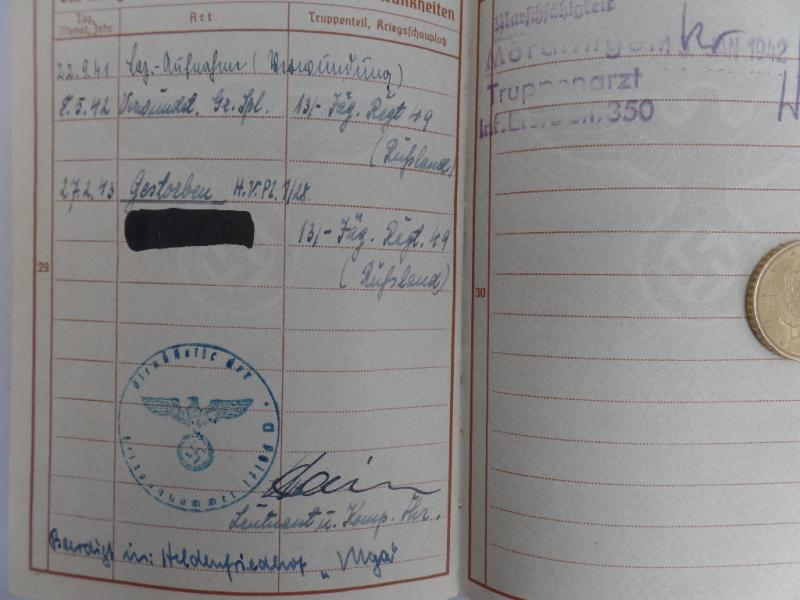 Krankheiten
Tag
Monat, Jahr
Art
Truppenteil, Kriegsschauplatz
22.9.41 Laz.-Aufnahme (Verwundung)
8.5.42 Verwundet. Gr. Spl. 13/- Jäg. Regt 49
(Rußland)
27.2.43 Gestorben H.V.Pl. 1/28.
13/- Jäg. Regt. 49
(Rußland)
29
Dienststelle der
Feldpostnummer
Leutnant u. Komp. Fhr.
Beerdigt in: Heldenfriedhof „Mga“
Marschfähigkeit
JAN 1942
Truppenarzt
350
30